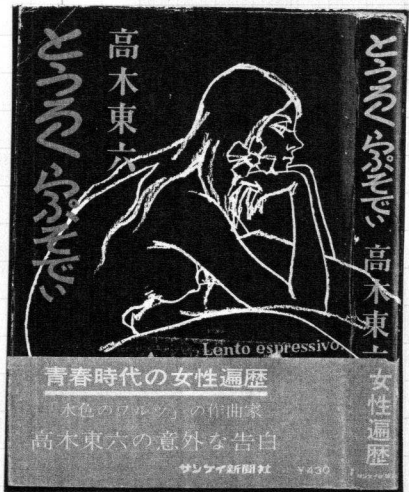 高木東六
とうろくらぷそでぃ
Lento espressivo
青春時代の女性遍歴
「水色のワルツ」の作曲家
高木東六の意外な告白
サンケイ新聞社 ¥430
とうろくらぷそでぃ
高木東六
女性遍歴